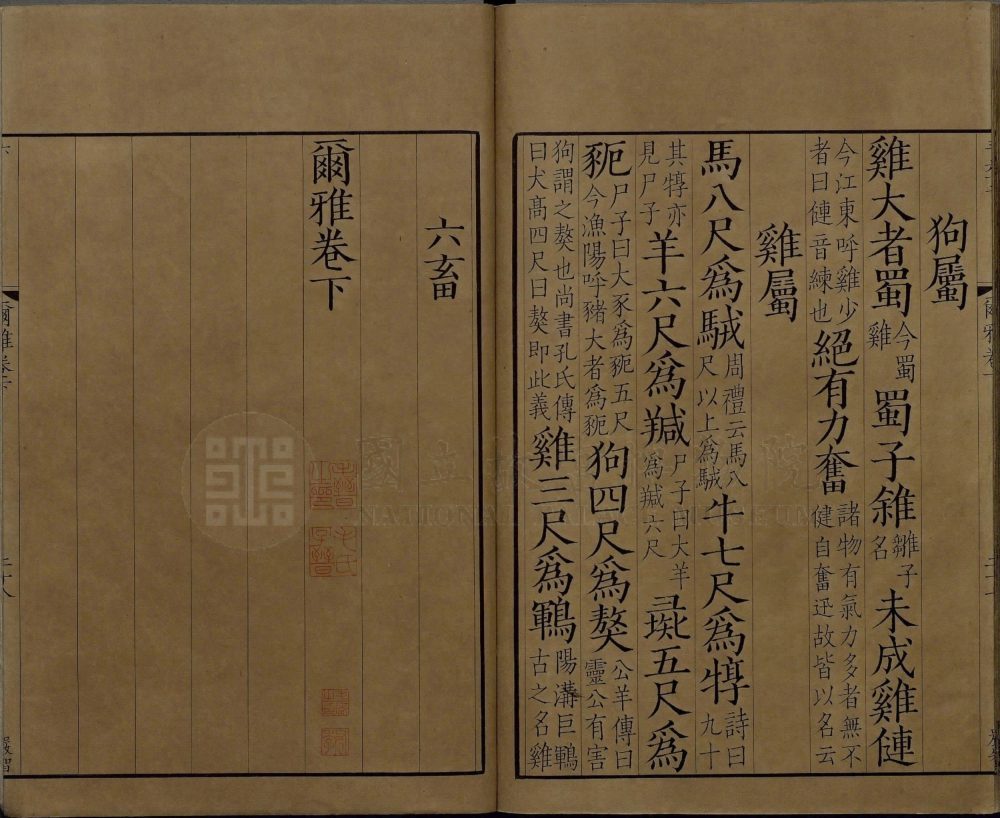 狗屬
雞大者蜀今蜀雞蜀子雓雛子名未成雞僆
今江東呼雞少者曰僆音練也絕有力奮諸物有氣力多者無不健自奮迅故皆以名云
雞屬
馬八尺爲駥周禮云馬八尺以上爲駥牛七尺爲犉詩曰九十
其犉亦見尸子羊六尺爲羬尸子曰大羊爲羬六尺彘五尺爲
豟尸子曰大豕爲豟五尺今漁陽呼豬大者爲豟狗四尺爲獒公羊傳曰靈公有害
狗謂之獒也尚書孔氏傳曰犬高四尺曰獒即此義雞三尺爲鶤陽溝巨鶤古之名雞
六畜
爾雅卷下
爾雅卷下
二十八